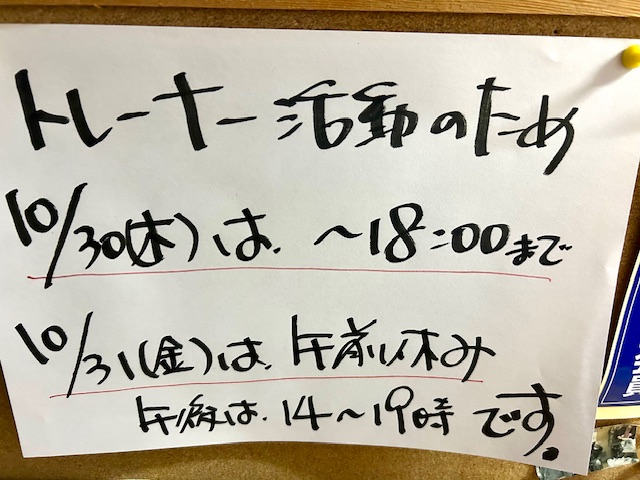 トレーナー活動のため
10/30(木)は、~18:00まで
10/31(金)は、午前休み
午後は、14~19時です。